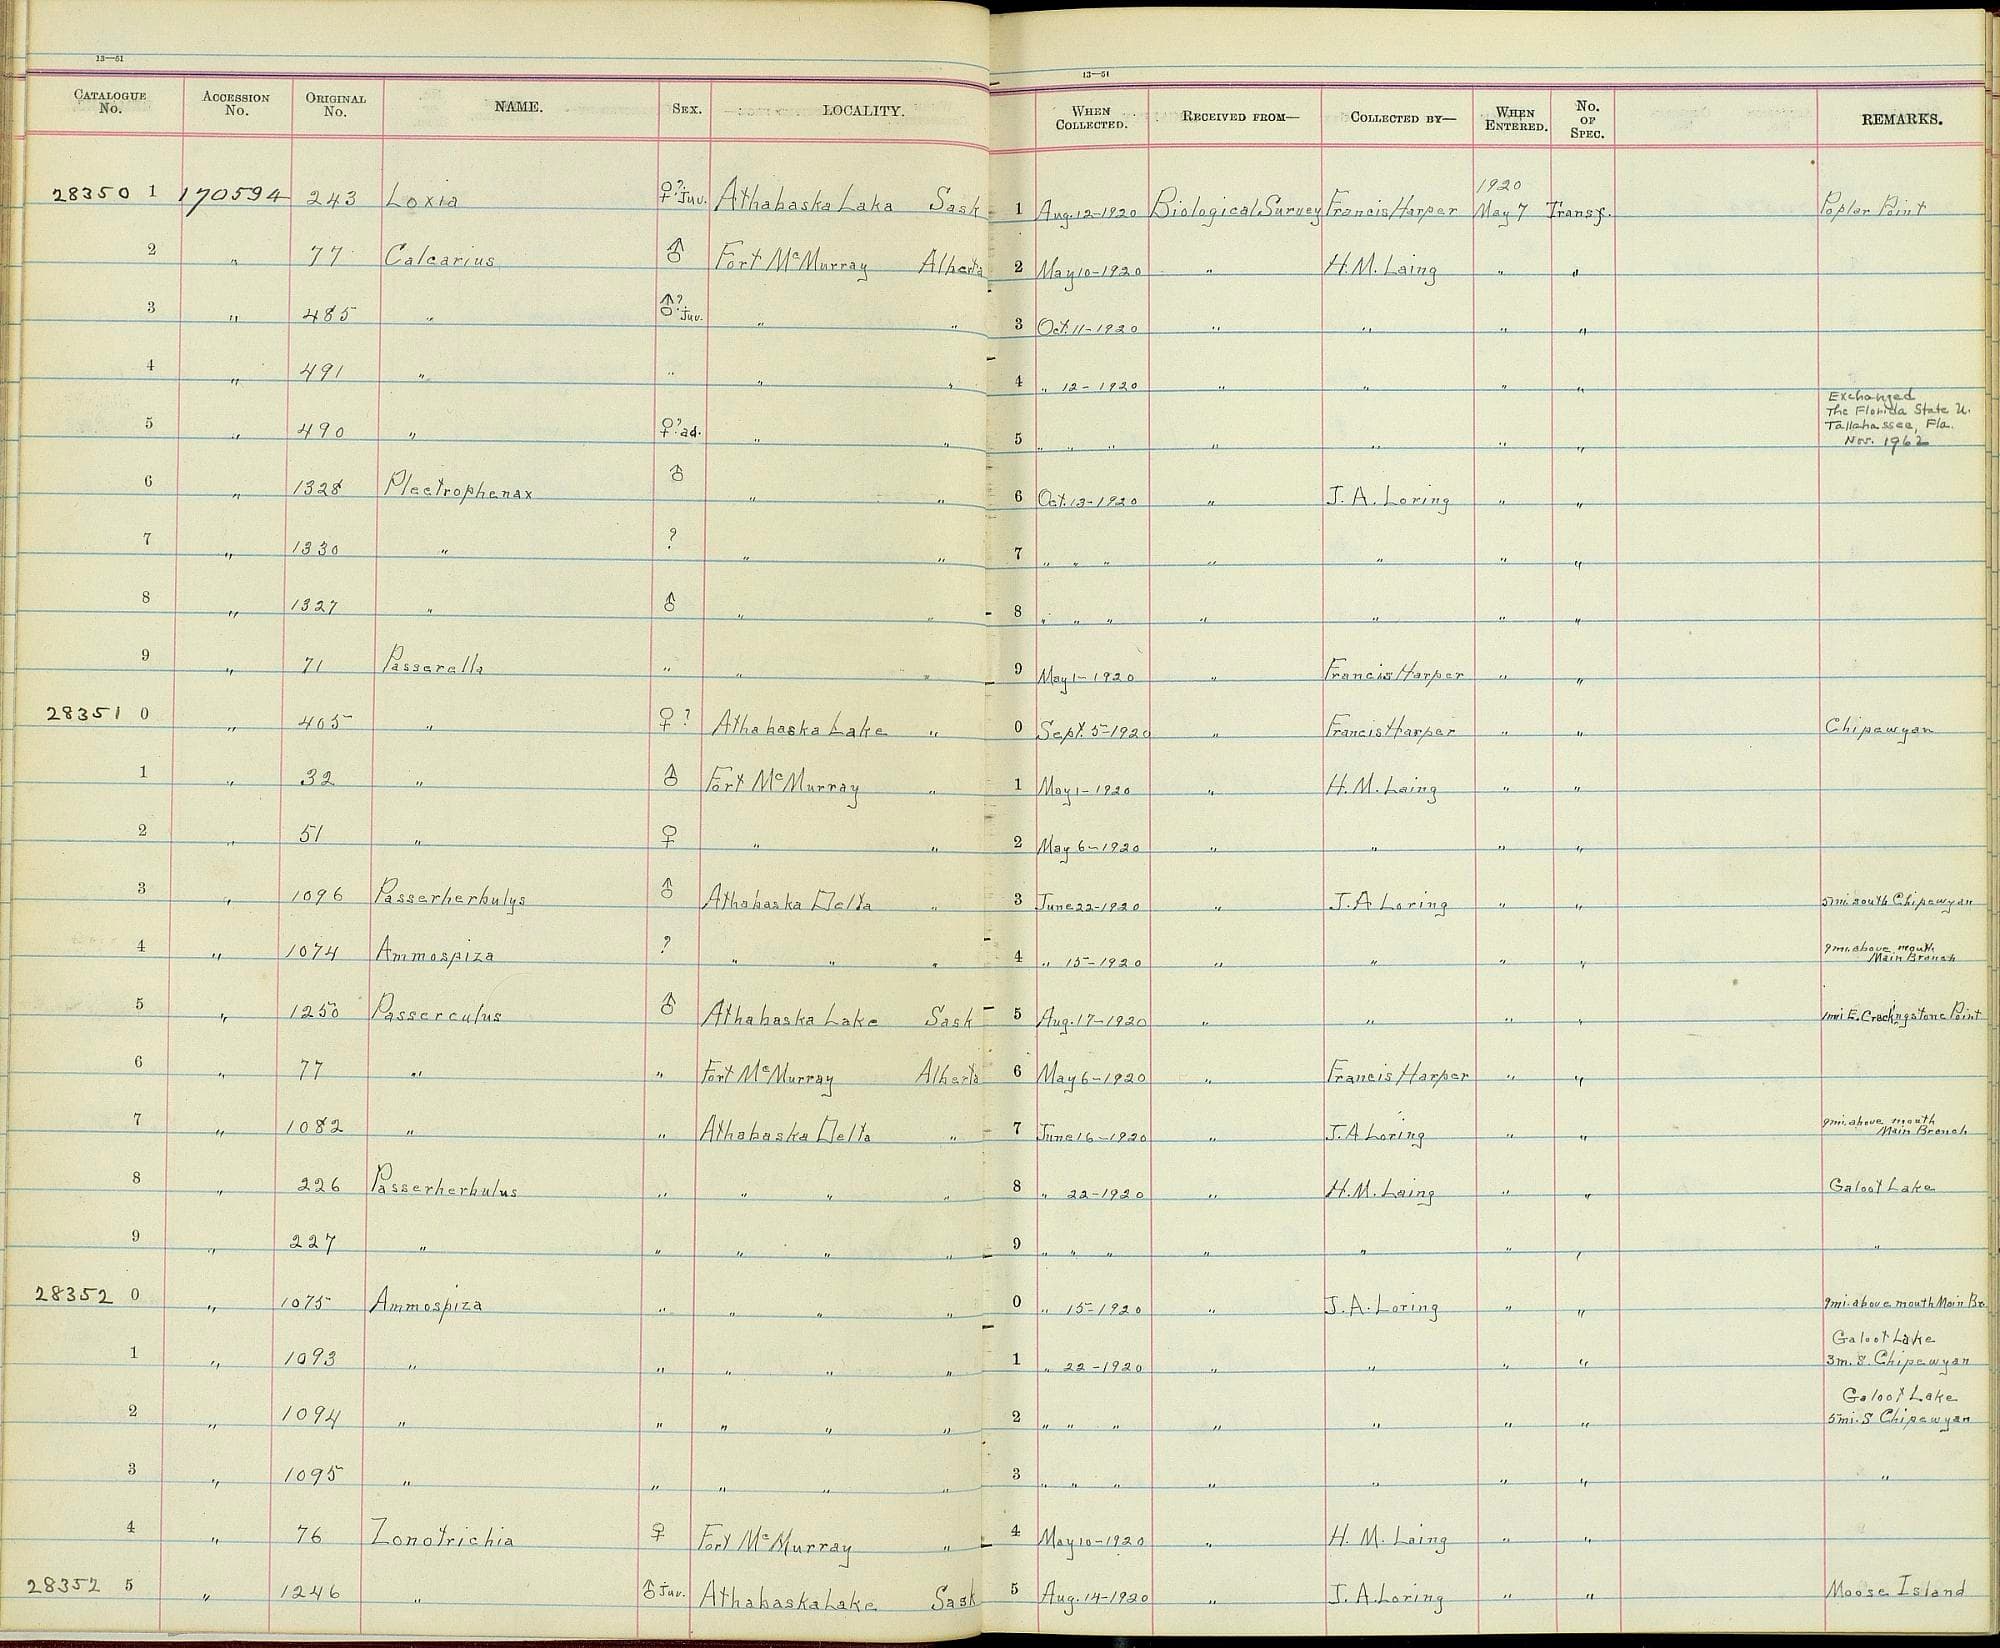 13—51
13—51
CATALOGUE No. ACCESSION No. ORIGINAL No. NAME. SEX. LOCALITY. WHEN COLLECTED. RECEIVED FROM— COLLECTED BY— WHEN ENTERED. No. OF SPEC. REMARKS.
28350 1 170594 243 Loxia ♀? Juv. Athabaska Laka Sask 1 Aug. 12-1920 Biological Survey Francis Harper 1920 May 7 Transf. Poplar Point
2 " 77 Calcarius ♂ Fort McMurray Alberta 2 May 10-1920 " H. M. Laing " "
3 " 485 " ♂? Juv. " " 3 Oct. 11-1920 " " " "
4 " 491 " " " " 4 " 12-1920 " " " "
5 " 490 " ♀? ad. " " 5 " " " " " " " Exchanged The Florida State U. Tallahassee, Fla. Nov. 1962
6 " 1328 Plectrophenax ♂ " " 6 Oct. 13-1920 " J. A. Loring " "
7 " 1330 " ? " " 7 " " " " " " "
8 " 1327 " ♂ " " 8 " " " " " " "
9 " 71 Passerella " " " 9 May 1-1920 " Francis Harper " "
28351 0 " 405 " ♀? Athabaska Lake " 0 Sept. 5-1920 " Francis Harper " " Chipewyan
1 " 32 " ♂ Fort McMurray " 1 May 1-1920 " H. M. Laing " "
2 " 51 " ♀ " " 2 May 6-1920 " " " "
3 " 1096 Passerherbulys ♂ Athabaska Delta " 3 June 22-1920 " J. A Loring " " 5mi. south Chipewyan
4 " 1074 Ammospiza ? " " " 4 " 15-1920 " " " " 9mi. above mouth Main Branch
5 " 1250 Passerculus ♂ Athabaska Lake Sask 5 Aug. 17-1920 " " " " 1mi E. Crackingstone Point
6 " 77 " " Fort McMurray Alberta 6 May 6-1920 " Francis Harper " "
7 " 1082 " " Athabaska Delta " 7 June 16-1920 " J. A Loring " " 9mi. above mouth Main Branch
8 " 226 Passerherbulus " " " " 8 " 22-1920 " H. M. Laing " " Galoot Lake
9 " 227 " " " " " 9 " " " " " " " "
28352 0 " 1075 Ammospiza " " " " 0 " 15-1920 " J. A. Loring " " 9mi. above mouth Main Br.
1 " 1093 " " " " " 1 " 22-1920 " " " " Galoot Lake 3m. S. Chipewyan
2 " 1094 " " " " " 2 " " " " " " " Galoot Lake 5mi. S Chipewyan
3 " 1095 " " " " " 3 " " " " " " " "
4 " 76 Zonotrichia ♀ Fort McMurray " 4 May 10-1920 " H. M. Laing " "
28352 5 " 1246 " ♂ Juv. Athabaska Lake Sask 5 Aug. 14-1920 " J. A. Loring " " Moose Island